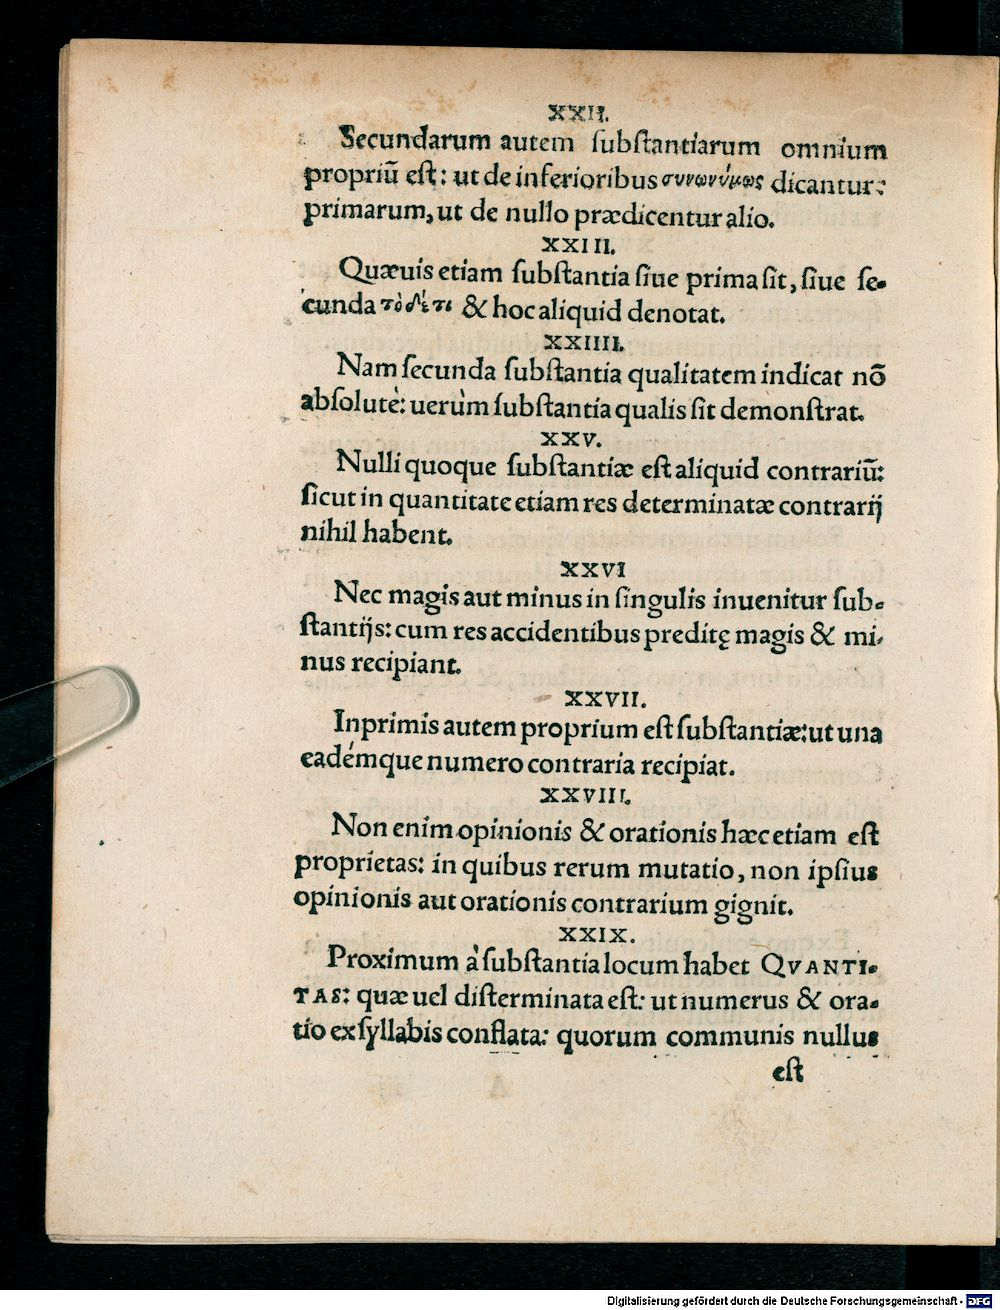 XXII.
Secundarum autem ſubſtantiarum omnium
propriũ eſt: ut de inferioribus συνωνύμως dicantur:
primarum, ut de nullo prædicentur alio.
XXIII.
Quæuis etiam ſubſtantia ſiue prima ſit, ſiue ſe-
cunda τὸδέ τι & hoc aliquid denotat.
XXIIII.
Nam ſecunda ſubſtantia qualitatem indicat nõ
abſolutè: uerùm ſubſtantia qualis ſit demonſtrat.
XXV.
Nulli quoque ſubſtantiæ eſt aliquid contrariũ:
ſicut in quantitate etiam res determinatæ contrarij
nihil habent.
XXVI
Nec magis aut minus in ſingulis inuenitur ſub-
ſtantijs: cum res accidentibus preditę magis & mi-
nus recipiant.
XXVII.
Inprimis autem proprium eſt ſubſtantiæ: ut una
eadémque numero contraria recipiat.
XXVIII.
Non enim opinionis & orationis hæc etiam eſt
proprietas: in quibus rerum mutatio, non ipſius
opinionis aut orationis contrarium gignit.
XXIX.
Proximum à ſubſtantia locum habet QVANTI-
TAS: quæ uel diſterminata eſt: ut numerus & ora-
tio ex ſyllabis conflata: quorum communis nullus
eſt
Digitalisierung gefördert durch die Deutsche Forschungsgemeinschaft - DFG